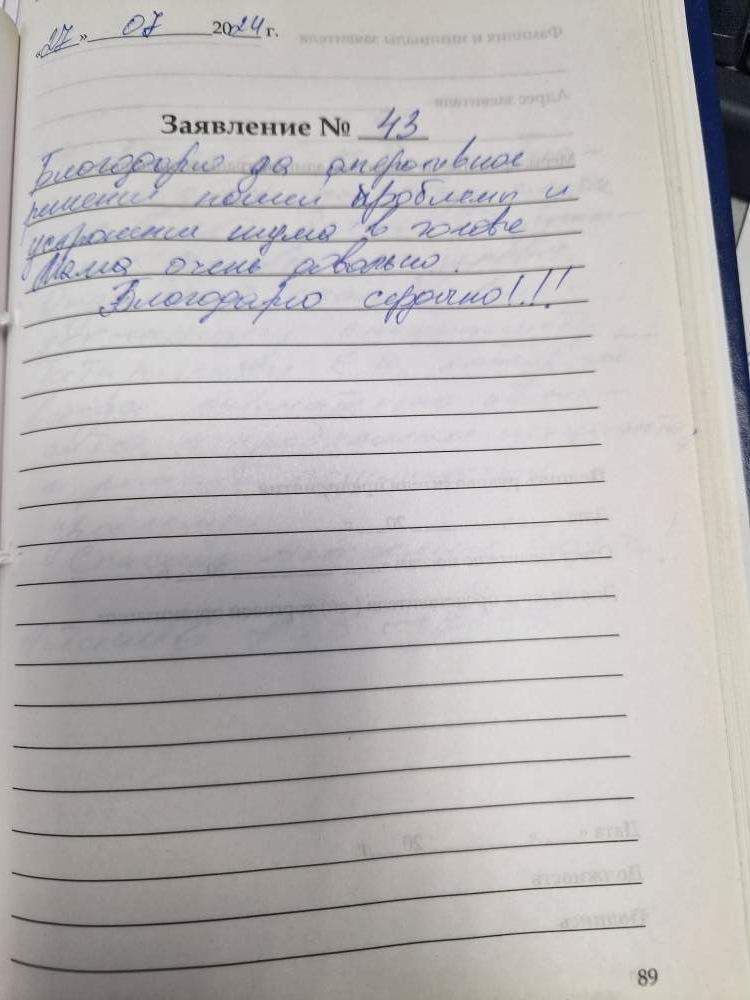 «27» 07 2024 г.
Заявление № 43
Благодарю за оперативное
решение нашей проблемы и
устранении шума в голове
Мама очень довольно.
Благодарю сердечно!!!
89